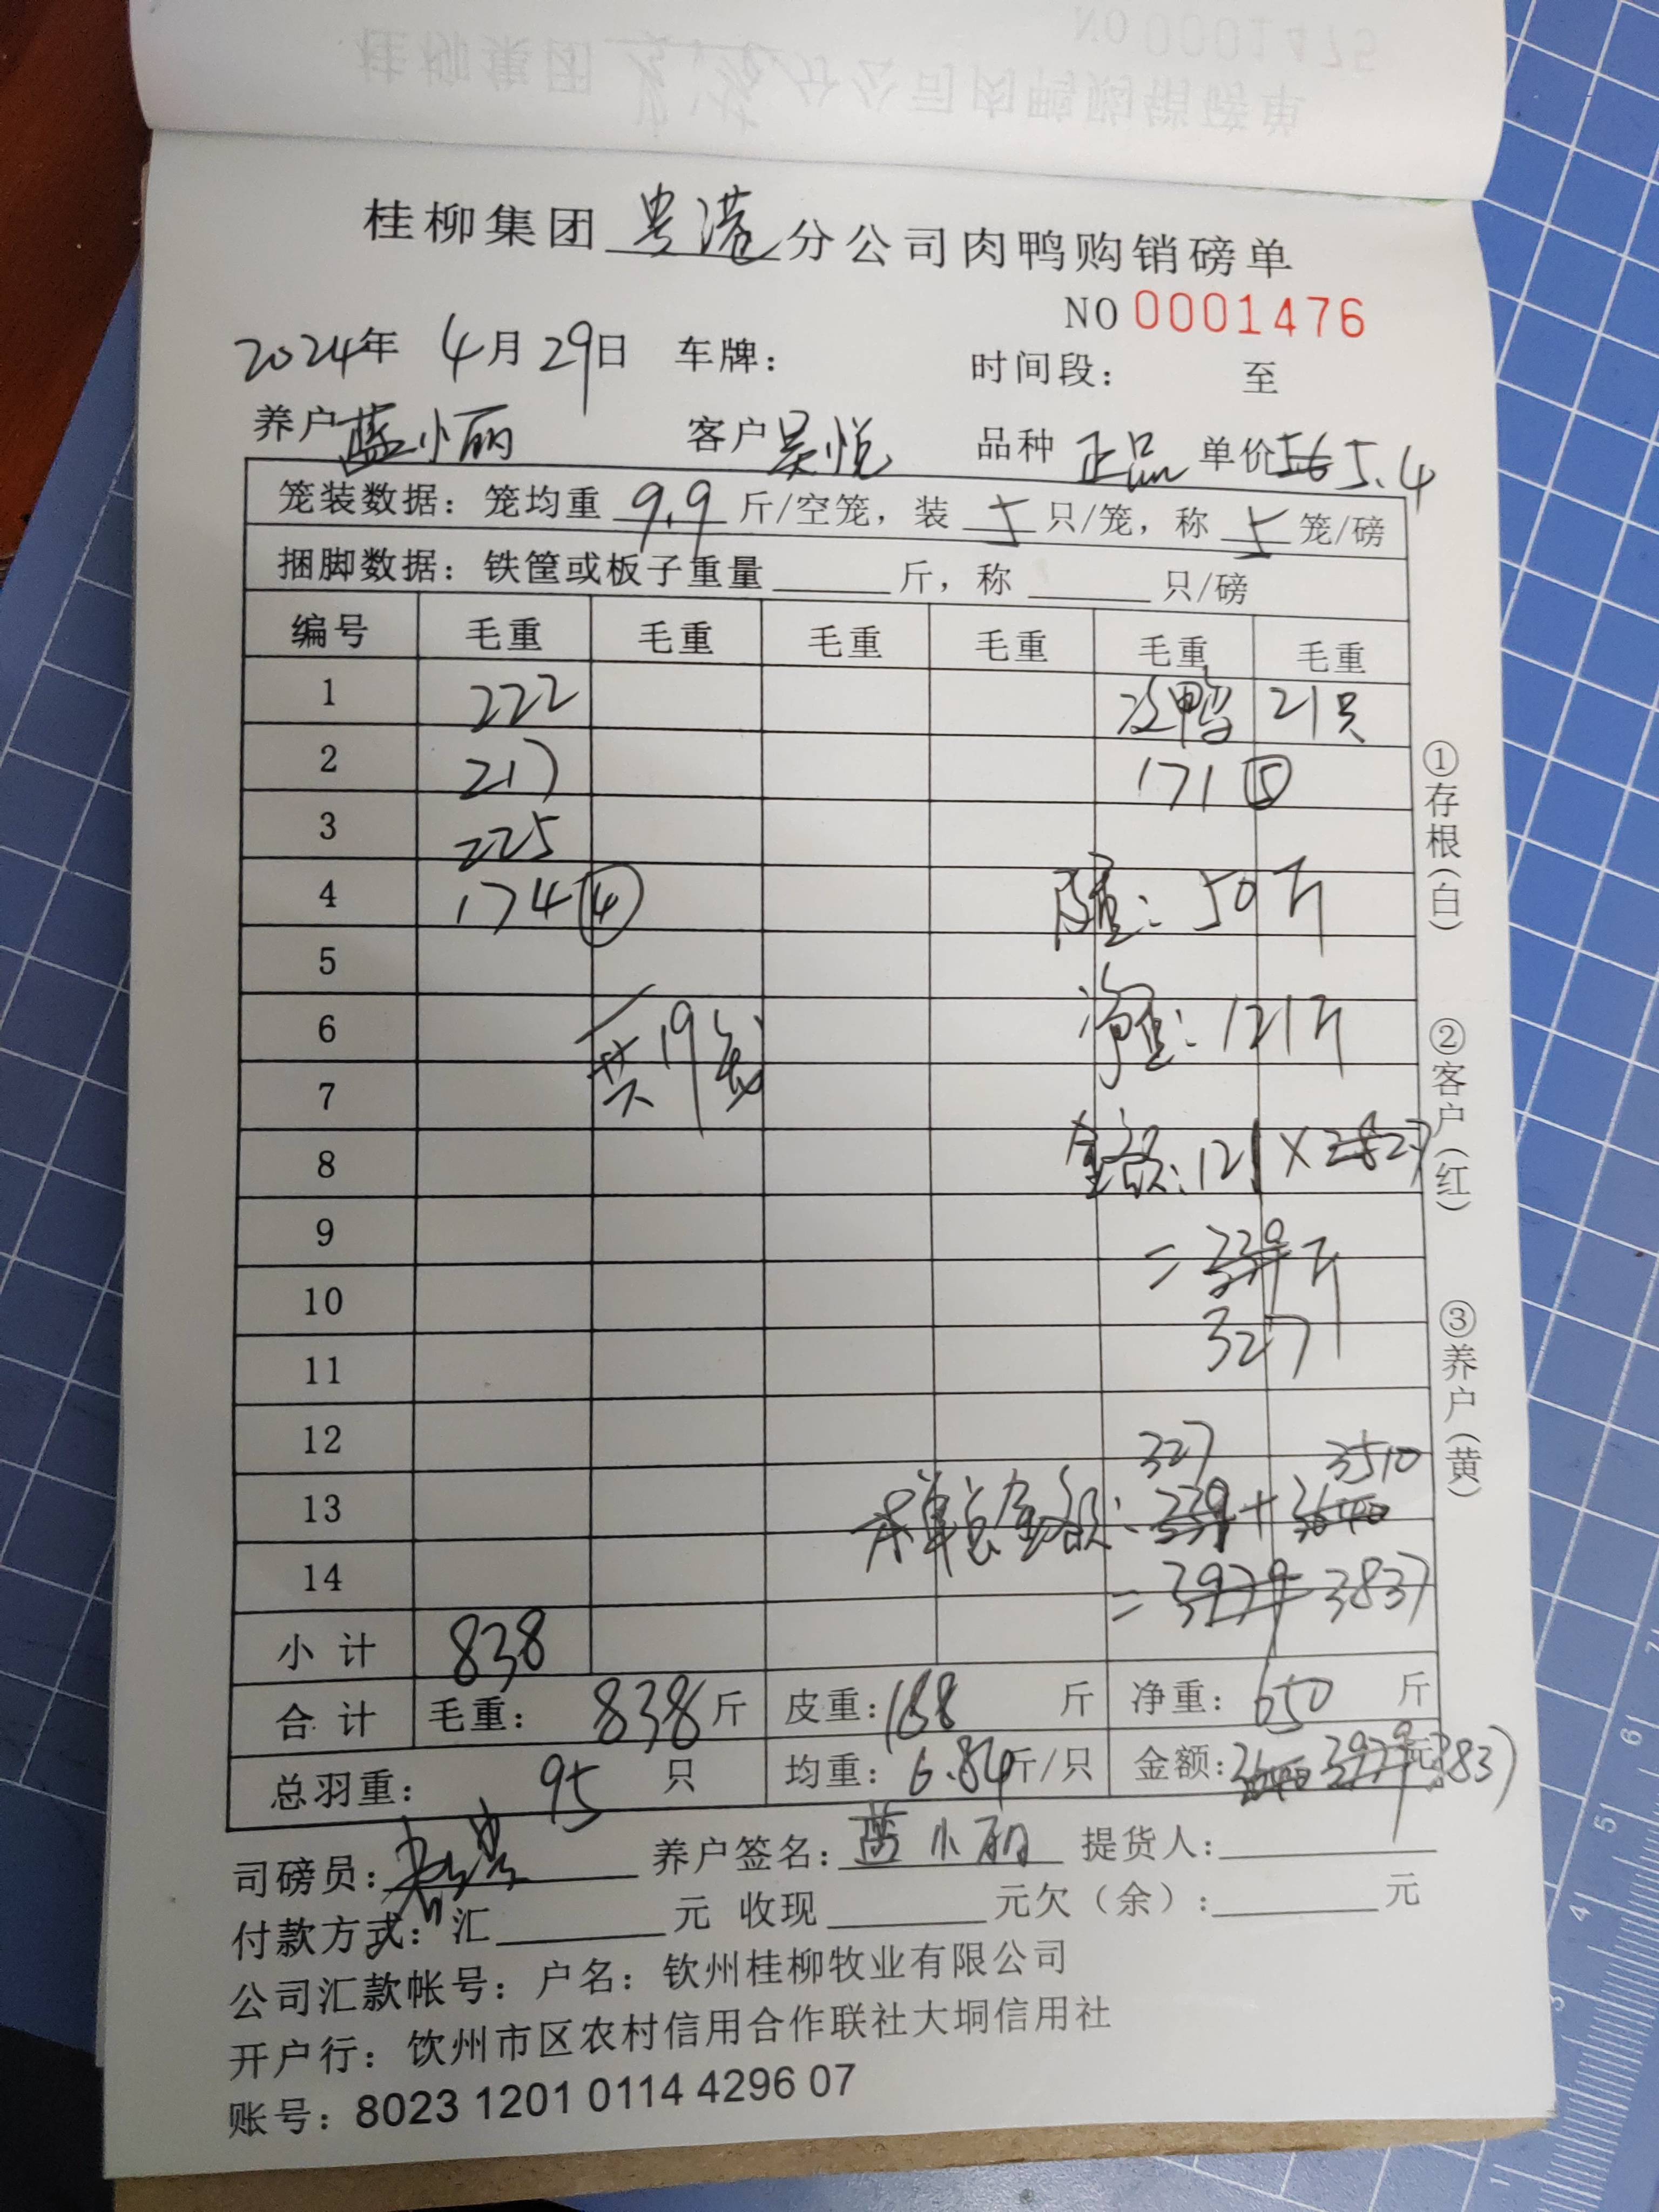 NO 0001475
桂柳集团 贵港 分公司肉鸭购销磅单
桂柳集团 贵港 分公司肉鸭购销磅单
NO 0001476
2024年 4月29日 车牌： 时间段： 至
养户 蓝小丽 客户 吴悦 品种 正品 单价 5.6 5.4
笼装数据：笼均重 9.9 斤/空笼，装 5 只/笼，称 5 笼/磅
捆脚数据：铁筐或板子重量 斤，称 只/磅
编号 毛重 毛重 毛重 毛重 毛重 毛重
1 222 次鸭 21只
2 217 171 ⑤
3 225
4 174 ④ 皮重：50斤
5
6 共19笼 净重：121斤
7
8 金额：121×
9 = 339
10 327
11
12 327 3510
13 本单总金额：339+3640
14 =3979 3837
小计 838
合计 毛重：838斤 皮重：188 斤 净重：650 斤
总羽重：95 只 均重：6.84斤/只 金额：3640 3979元 3837
司磅员： 养户签名：蓝小丽 提货人：
付款方式：汇 元 收现 元欠（余）： 元
公司汇款帐号：户名：钦州桂柳牧业有限公司
开户行：钦州市区农村信用合作联社大垌信用社
账号：8023 1201 0114 4296 07
①存根（白）
②客户（红）
③养户（黄）